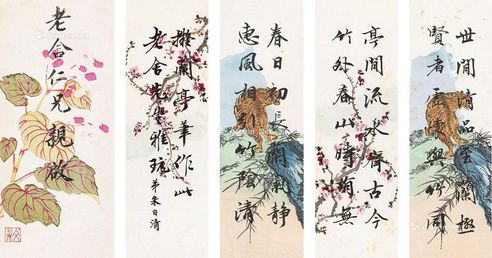 世間清品至蘭極
賢者虛懷與竹同
亭間流水齊古今
竹外春山時有無
春日初長閒氣靜
惠風相引竹陰清
擬蘭亭筆作此
老舍先生雅玩
弟朱自清
老舍仁兄親啟